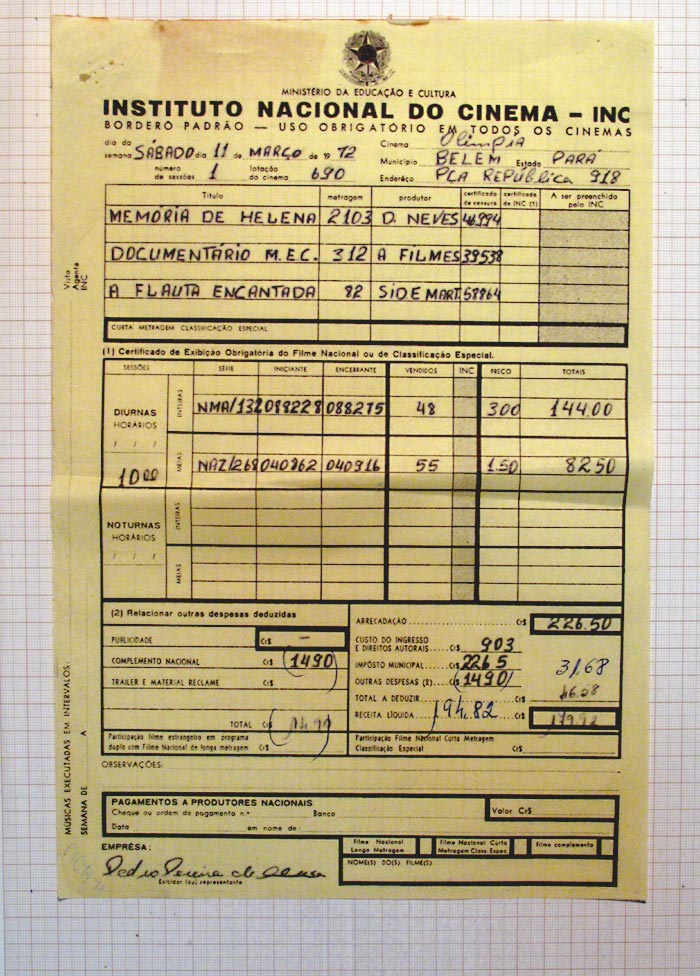 MINISTÉRIO DA EDUCAÇÃO E CULTURA
INSTITUTO NACIONAL DO CINEMA – INC
BORDERÔ PADRÃO — USO OBRIGATÓRIO EM TODOS OS CINEMAS
dia da semana SÁBADO dia 11 de MARÇO de 1972 Cinema Olímpia
Município BELÉM Estado PARÁ
número de sessões 1 lotação do cinema 690 Endereço PÇA REPÚBLICA 918
Título metragem produtor certificado de censura certificado de INC (1) A ser preenchido pelo INC
MEMÓRIA DE HELENA 2103 D. NEVES 46994
DOCUMENTÁRIO M.E.C. 312 A FILMES 39538
A FLAUTA ENCANTADA 82 SIDEMART. 58864
Visto Agente INC
CURTA METRAGEM CLASSIFICAÇÃO ESPECIAL
(1) Certificado de Exibição Obrigatória do Filme Nacional ou de Classificação Especial.
SESSÕES SÉRIE INICIANTE ENCERRANTE VENDIDOS INC PREÇO TOTAIS
DIURNAS HORÁRIOS
INTEIRAS NMA/132 088228 088275 48 300 144.00
/ / /
10 00
MEIAS NAZ/268 040862 040916 55 1.50 82.50
NOTURNAS HORÁRIOS
INTEIRAS
/ / /
MEIAS
(2) Relacionar outras despesas deduzidas
PUBLICIDADE Cr$ —
COMPLEMENTO NACIONAL Cr$ (1490)
TRAILER E MATERIAL RECLAME Cr$
TOTAL Cr$ (1490)
Participação filme estrangeiro em programa duplo com Filme Nacional de longa metragem Cr$
ARRECADAÇÃO Cr$ 226.50
CUSTO DO INGRESSO E DIREITOS AUTORAIS Cr$ 903
IMPÔSTO MUNICIPAL Cr$ 2265 31,68
OUTRAS DESPESAS (2) Cr$ (1490)
TOTAL A DEDUZIR 46.58
RECEITA LÍQUIDA 194.82 179.92
Participação Filme Nacional Curta Metragem Classificação Especial Cr$
OBSERVAÇÕES:
MÚSICAS EXECUTADAS EM INTERVALOS.
SEMANA DE A
PAGAMENTOS A PRODUTORES NACIONAIS
Valor Cr$
Cheque ou ordem de pagamento n.º Banco
Data em nome de:
EMPRÊSA:
Filme Nacional Longa Metragem
Filme Nacional Curta Metragem Class. Espec.
Filme complemento
NOME(S) DO(S) FILME(S)
Pedro Pereira de
Exibidor (ou) representante